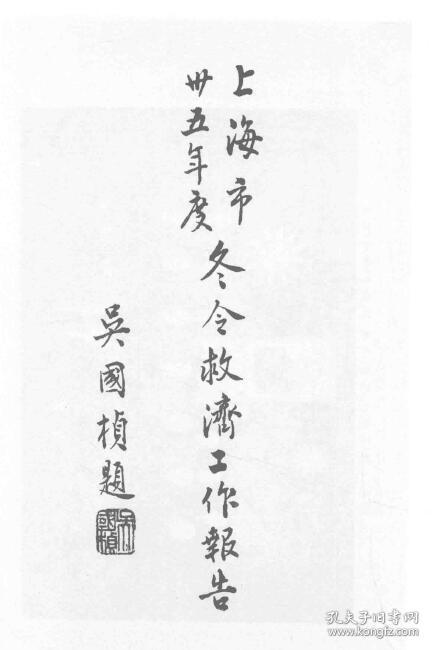 上海市
卅五年度
冬令救濟工作報告
吳國楨題
吳國楨
孔夫子旧书网
www.kongfz.com